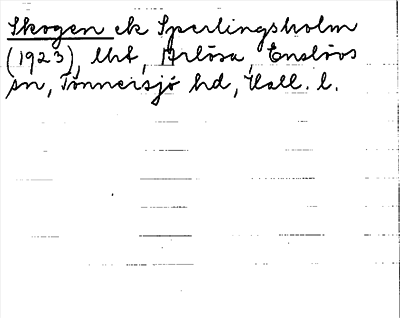 Skogen ek Sperlingsholm
(1923), lht, Årlösa, Enslövs
sn, Tönnersjö hd, Hall. l.